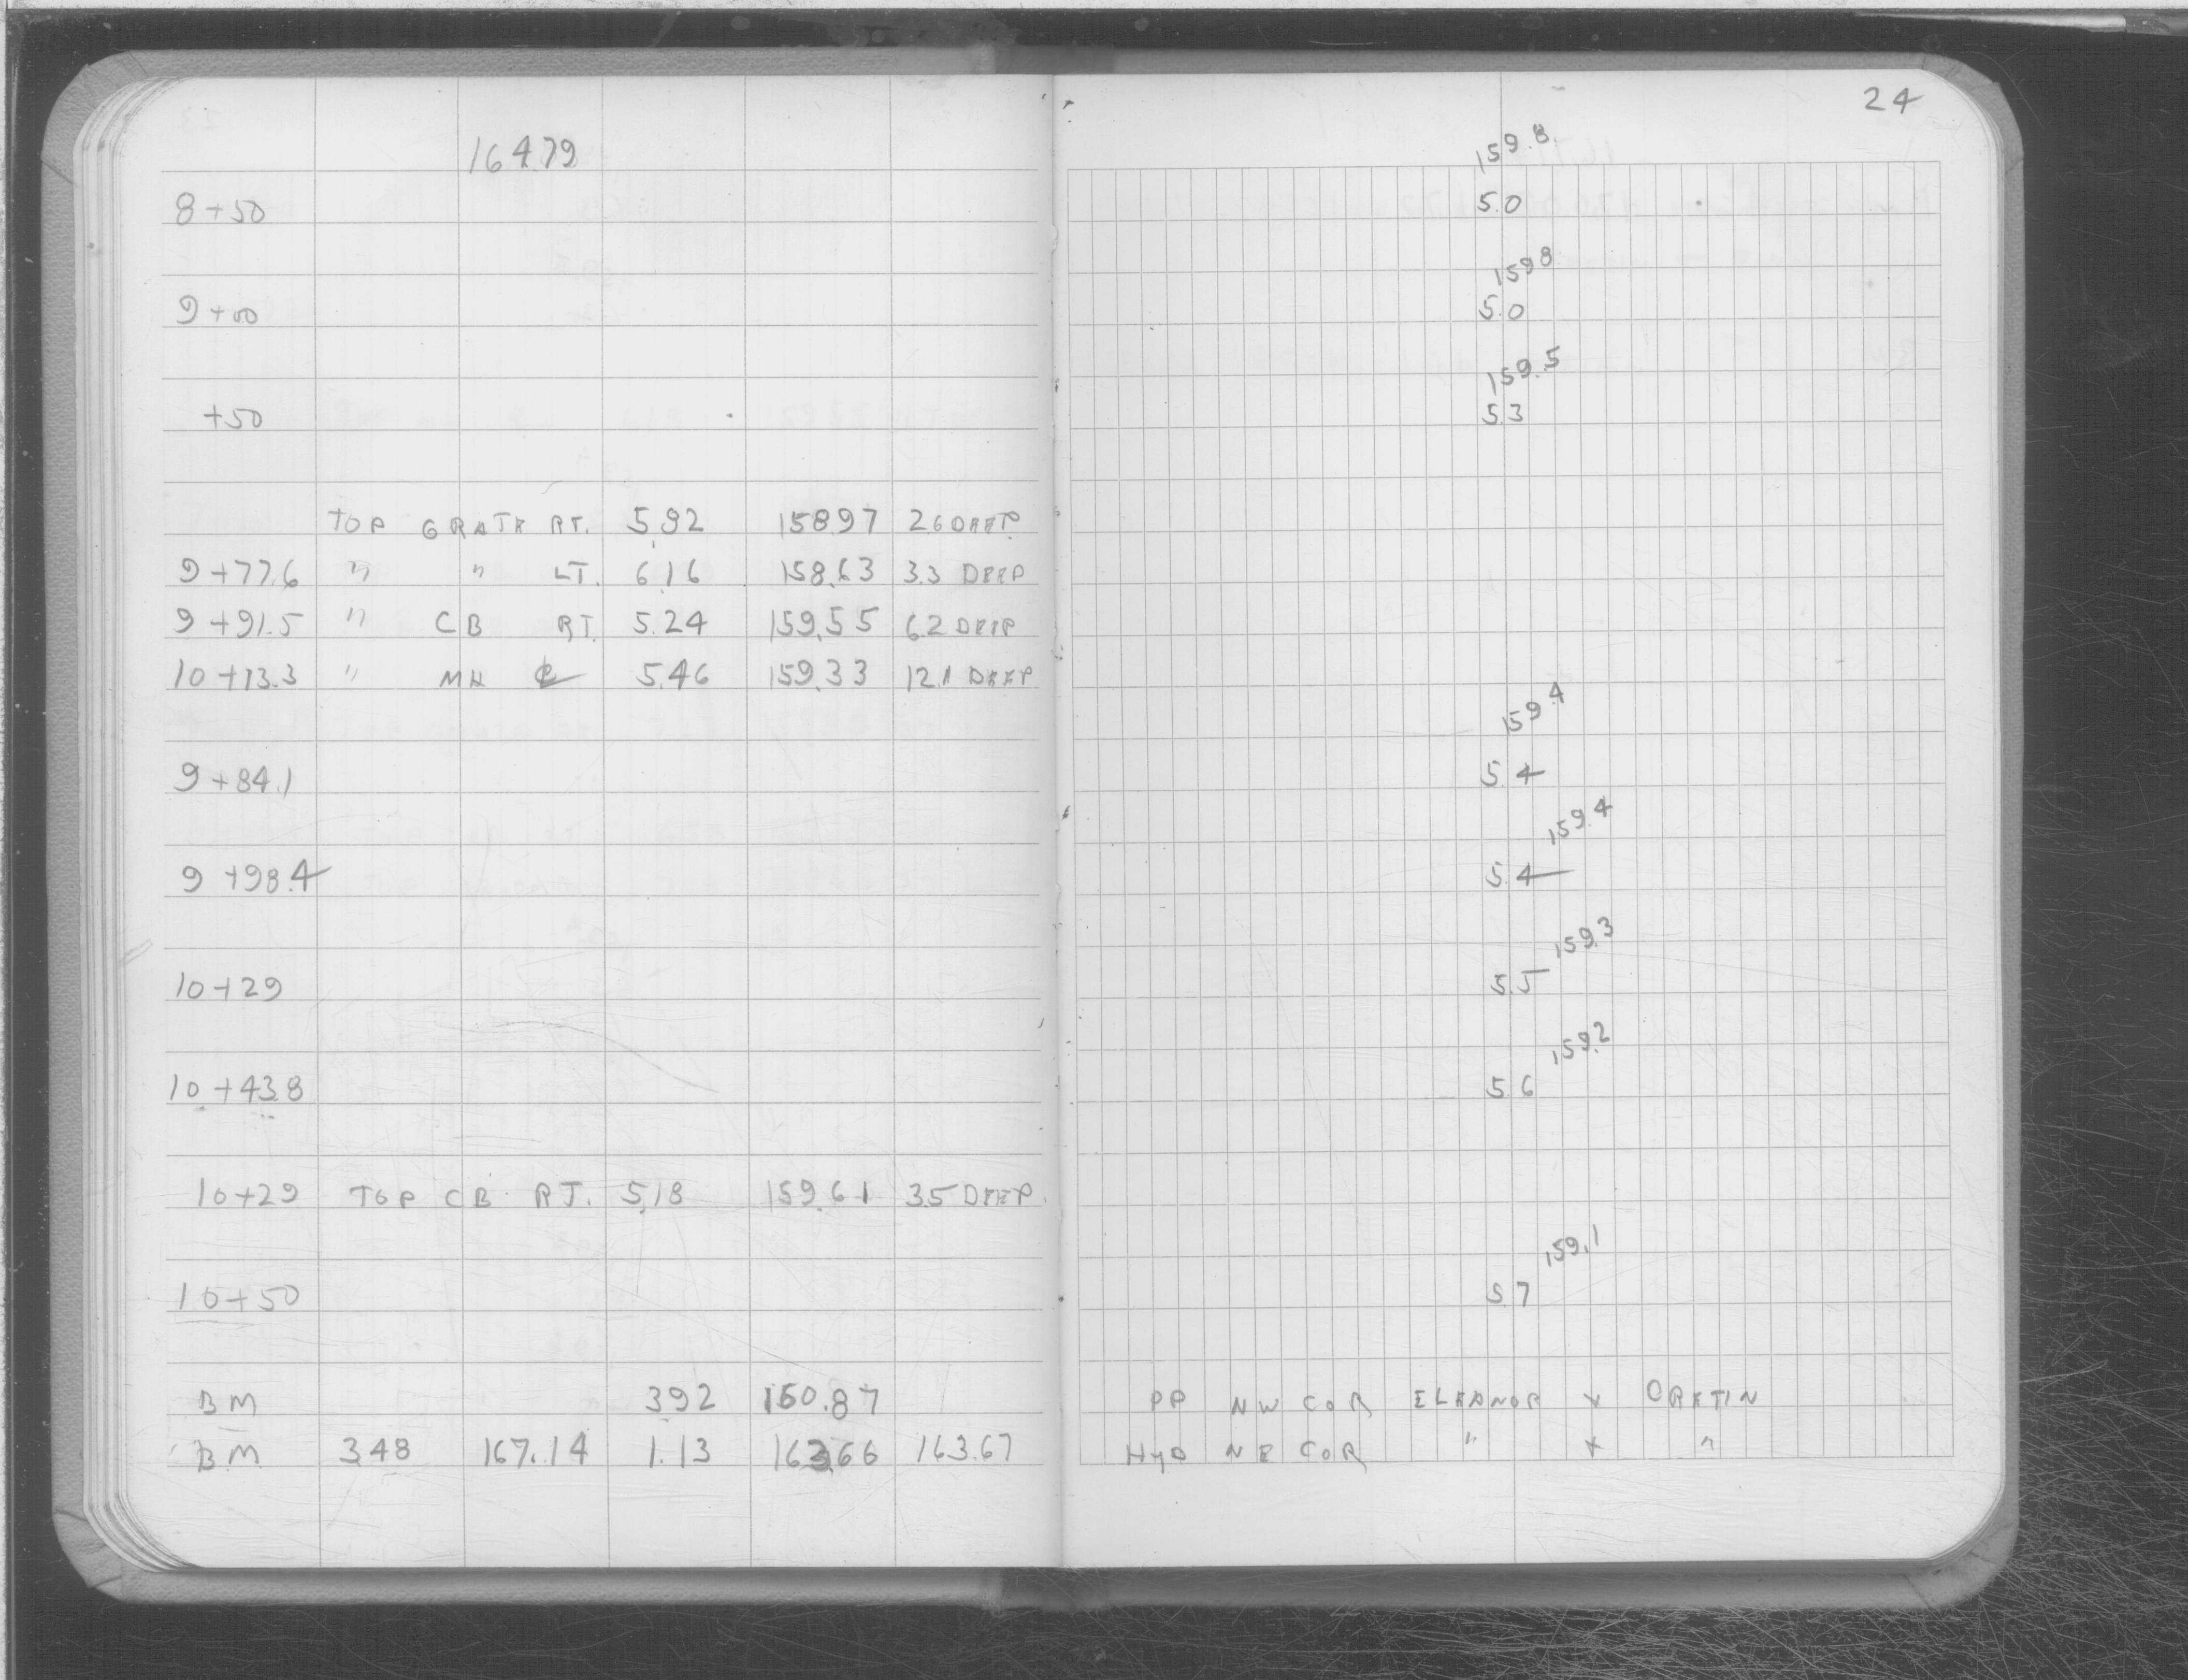 24
164.79
159.8
8+50 5.0
159.8
9+00 5.0
159.5
+50 5.3
TOP GRATE RT. 5.92 158.97 2.6 DEEP
9+77.6 " " LT. 6.16 158.63 3.3 DEEP
9+91.5 " CB RT. 5.24 159.55 6.2 DEEP
10+13.3 " MH ℄ 5.46 159.33 12.1 DEEP
159.4
9+84.1 5.4
159.4
9+98.4 5.4
159.3
10+29 5.5
159.2
10+43.8 5.6
10+29 TOP CB RT. 5.18 159.61 3.5 DEEP
159.1
10+50 5.7
BM 3.92 160.87 PP NW COR ELEANOR x CRETIN
BM 3.48 167.14 1.13 163.66 163.67 HYD NE COR " x "